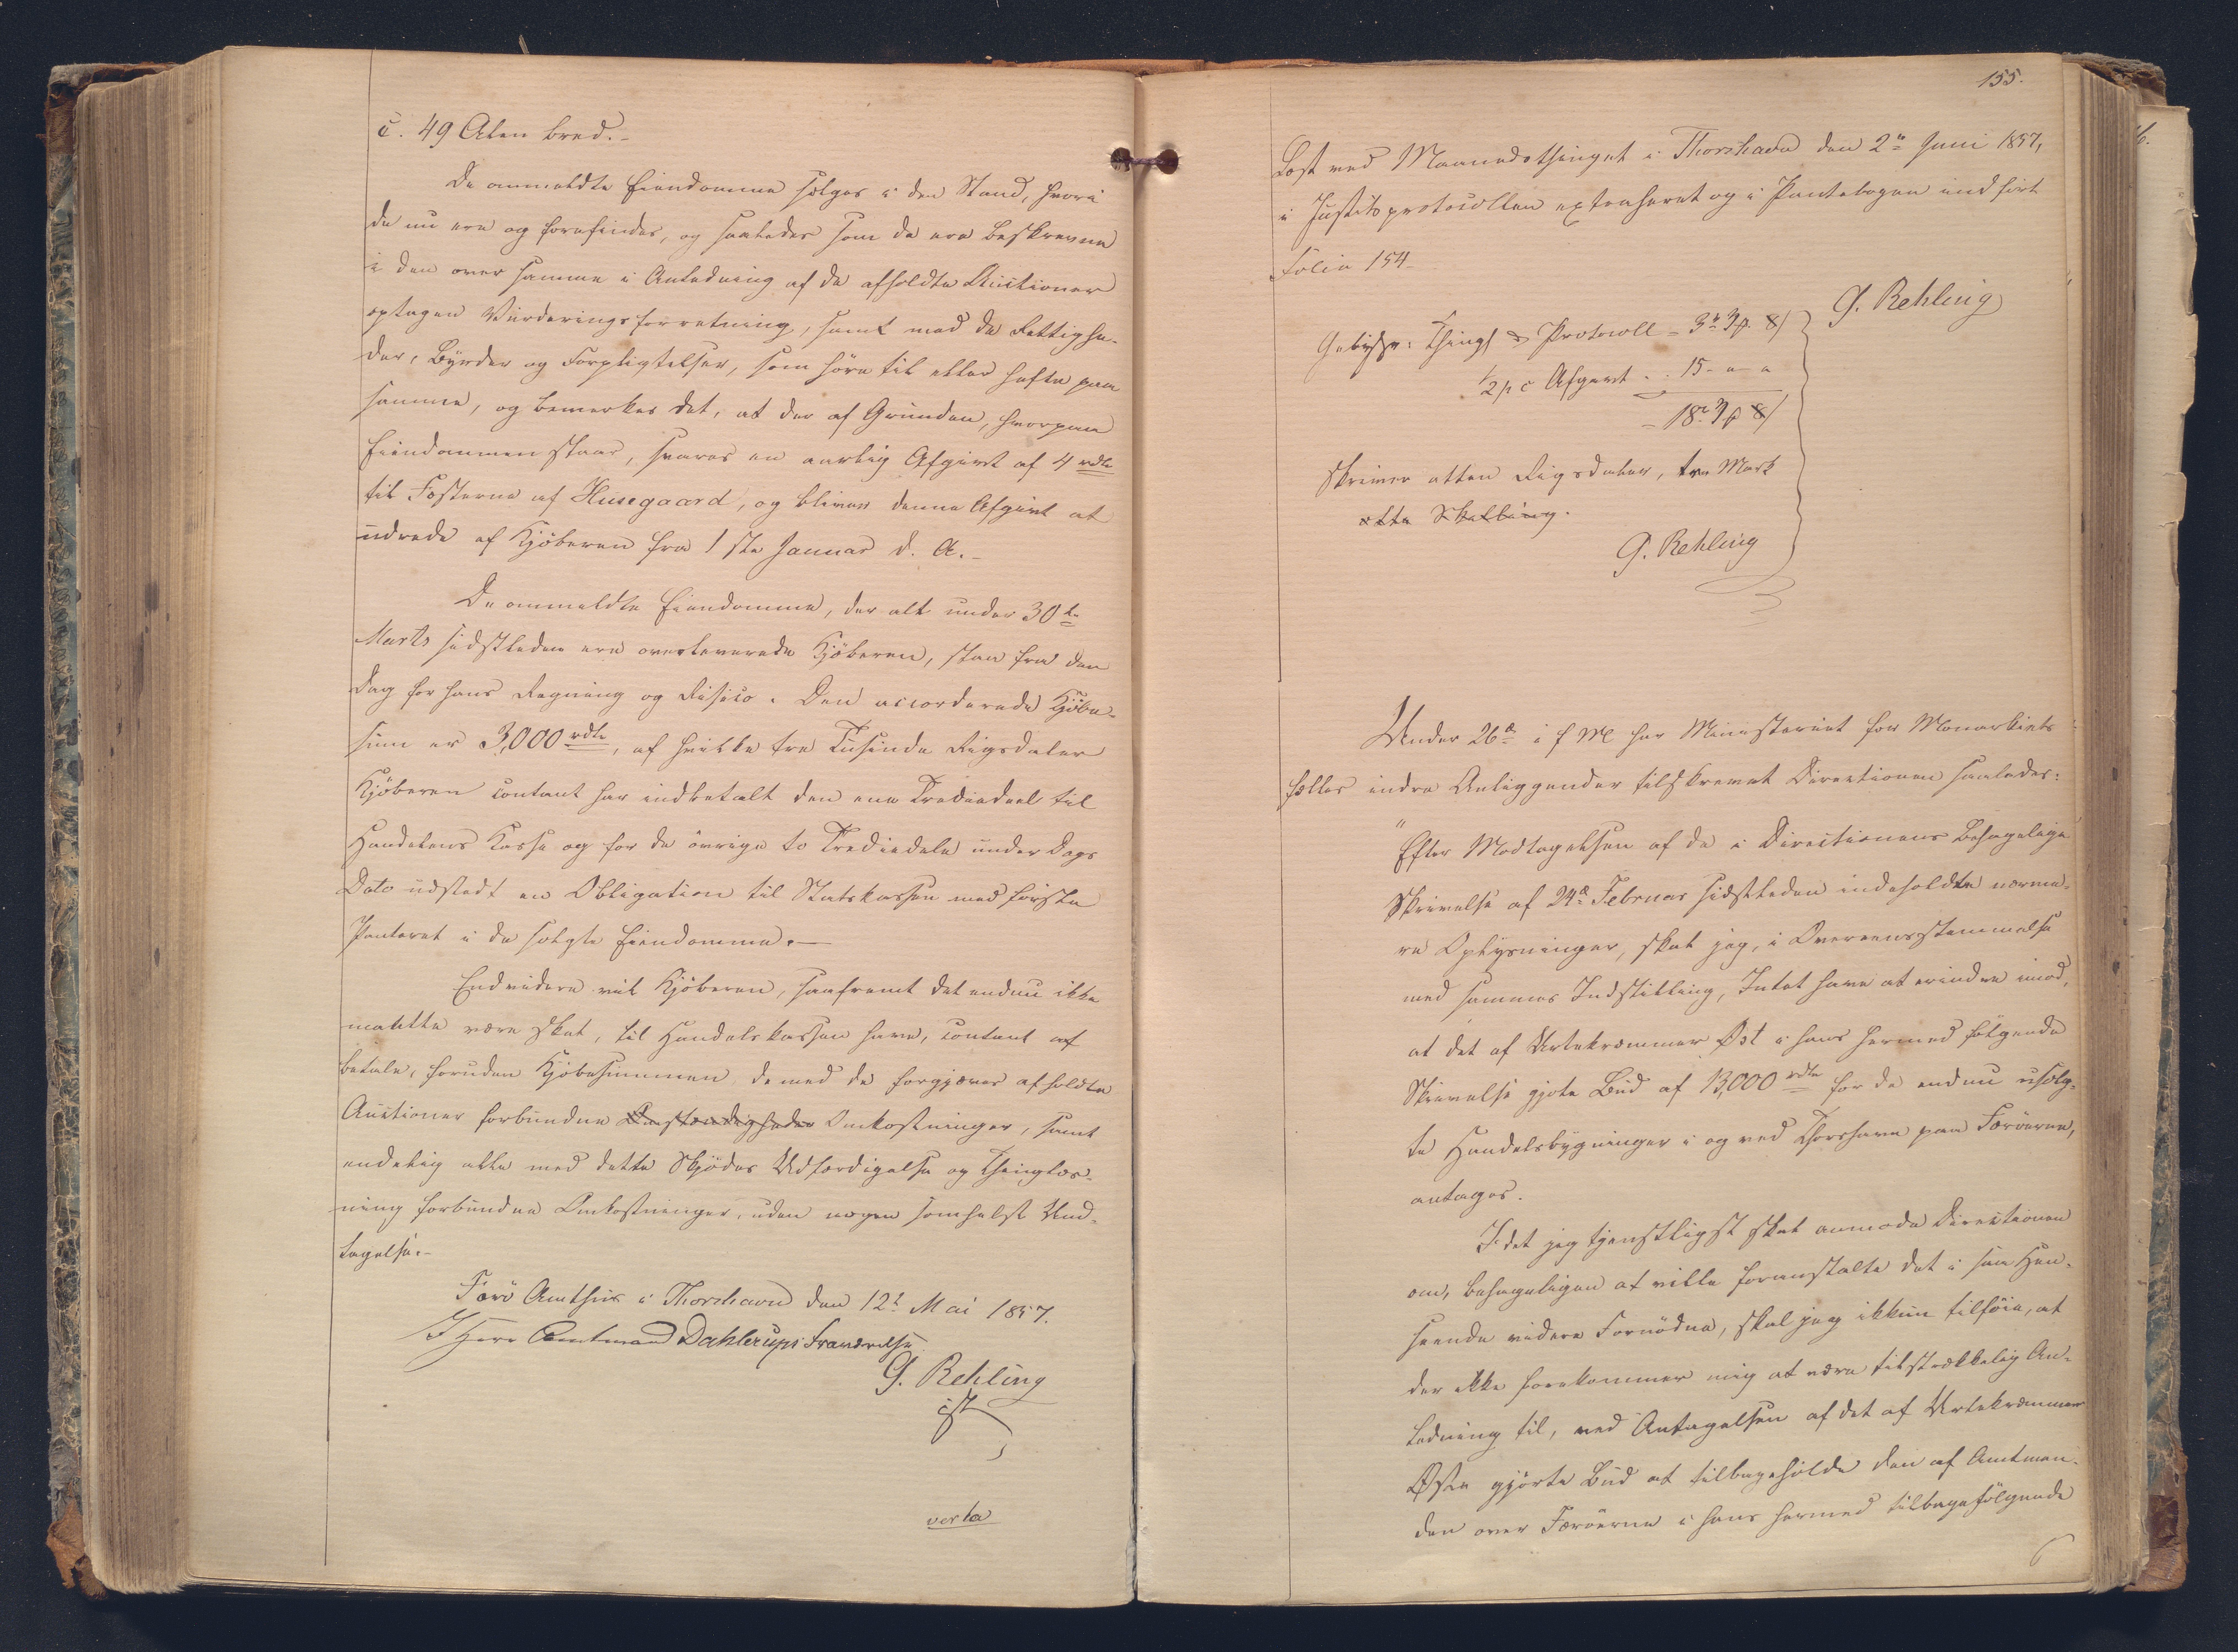 c. 49 Alen bred.-
De ommeldte Eiendomme sælges i den Stand, hvori
de nu ere og forefindes, og saaledes som de ere beskrevne
i den over samme i Anledning af de afholdte Auctioner
optagen Vurderingsforretning, samt med de Rettighe-
der, Byrder og Forpligtelser, som høre til eller hefte paa
samme, og bemærkes det, at der af Grunden, hvorpaa
Eiendommen staar, svares en aarlig Afgivt af 4 rdlr
til Fæsterne af Husegaard, og bliver denne Afgivt at
udrede af Kjöberen fra 1ste Januar d. A.-
De ommeldte Eiendomme, der alt under 30te
Marts sidstleden ere overleverede Kjöberen, staa fra den
Dag for hans Regning og Risico. Den accorderede Kjöbe-
sum er 3,000 rdlr, af hvilke tre Tusinde Rigsdaler
Kjöberen contant har indbetalt den ene Trediedeel til
Handelens Kasse og for de övrige to Trediedele under Dags
Dato udstedt en Obligation til Statskassen med förste
Panteret i de solgte Eiendomme.-
Endvidere vil Kjöberen, saafremt det endnu ikke
maatte være skeet, til Handelskassen have, contant at
betale, foruden Kjöbesummen de med de forgjæves afholdte
Auctioner forbundne Omstændigheder Omkostninger, samt
endelig alle med dette Skjödes Udfærdigelse og Thinglæs-
ning forbundne Omkostninger, uden nogen somhelst Und-
tagelse.-
Færö Amthuis i Thorshavn den 12te Mai 1857.
I Herr Amtmand Dahlerups Fraværelse
G. Rehling
cst
verte
155.
Læst ved Maanedsthinget i Thorshavn den 2de Juni 1857,
i Justitsprotocollen extraheret og i Pantebogen indfört
Folio 154
G. Rehling
Gebyhr: Thingl & Protocoll = 3r 3β 8/
1/2 p c Afgivt . . 15 - " - "
= 18r 3β 8/
skriver atten Rigsdaler, tre Mark
otte Skilling.
G. Rehling
Under 26de i f M har Ministeriet for Monarkiets
fælles indre Anliggender tilskrevet Directionen saaledes:
"Efter Modtagelsen af de i Directionens behagelige
Skrivelse af 24de Februar sidstleden indeholdte nærme-
re Oplysninger, skal jeg, i Overeensstemmelse
med sammes Indstilling, Intet have at erindre imod,
at det af Urtekræmmer Øst i hans hermed fölgende
Skrivelse gjorte Bud af 13,000 rdlr for de endnu usolg-
te Handelsbygninger i og ved Thorshavn paa Færöerne,
antages.
Idet jeg tjenstligst skal anmode Directionen
om, behageligen at ville foranstalte det i saa Hen-
seende videre Fornödne, skal jeg ikkun tilföie, at
der ikke forekommer mig at være tilstrækkelig An-
ledning til, ved Antagelsen af det af Urtekræmmer
Øst gjorte Bud at tilbageholde den af Amtman-
den over Færöerne i hans hermed tilbagefölgende